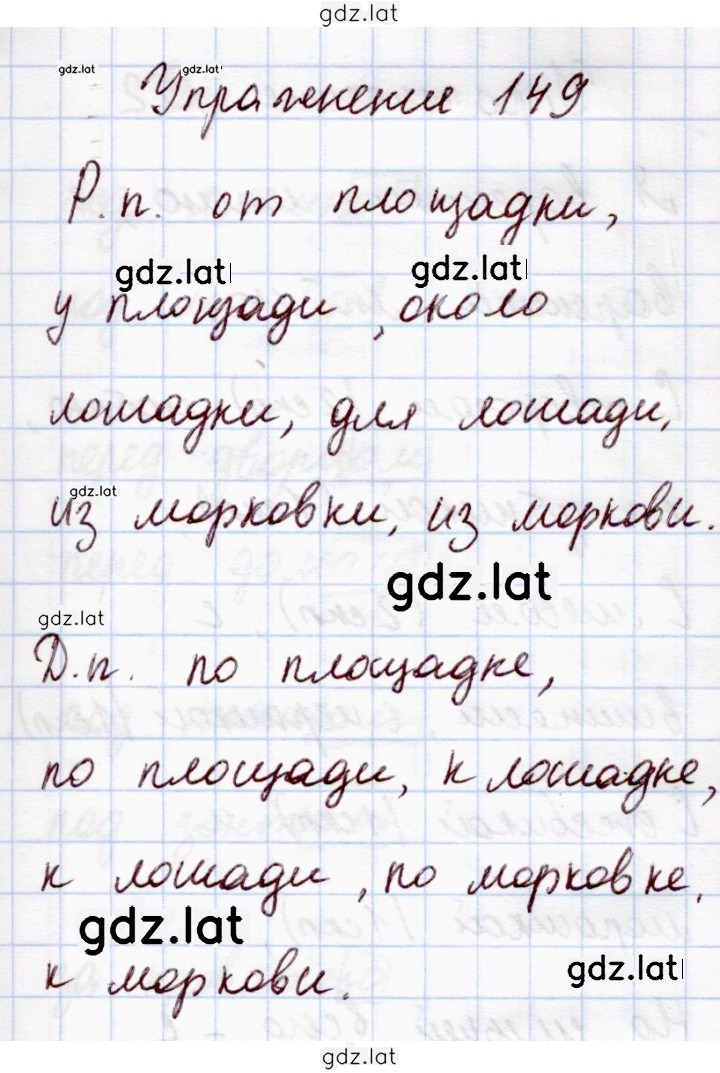 gdz.lat
gdz.lat gdz.lat
Упражнение 149
Р.п. от площадки,
gdz.lat gdz.lat
у площади, около
лошадки, для лошади,
gdz.lat
из морковки, из моркови.
gdz.lat
gdz.lat
Д.п. по площадке,
по площади, к лошадке,
к лошади, по морковке,
gdz.lat
gdz.lat
к моркови.
gdz.lat